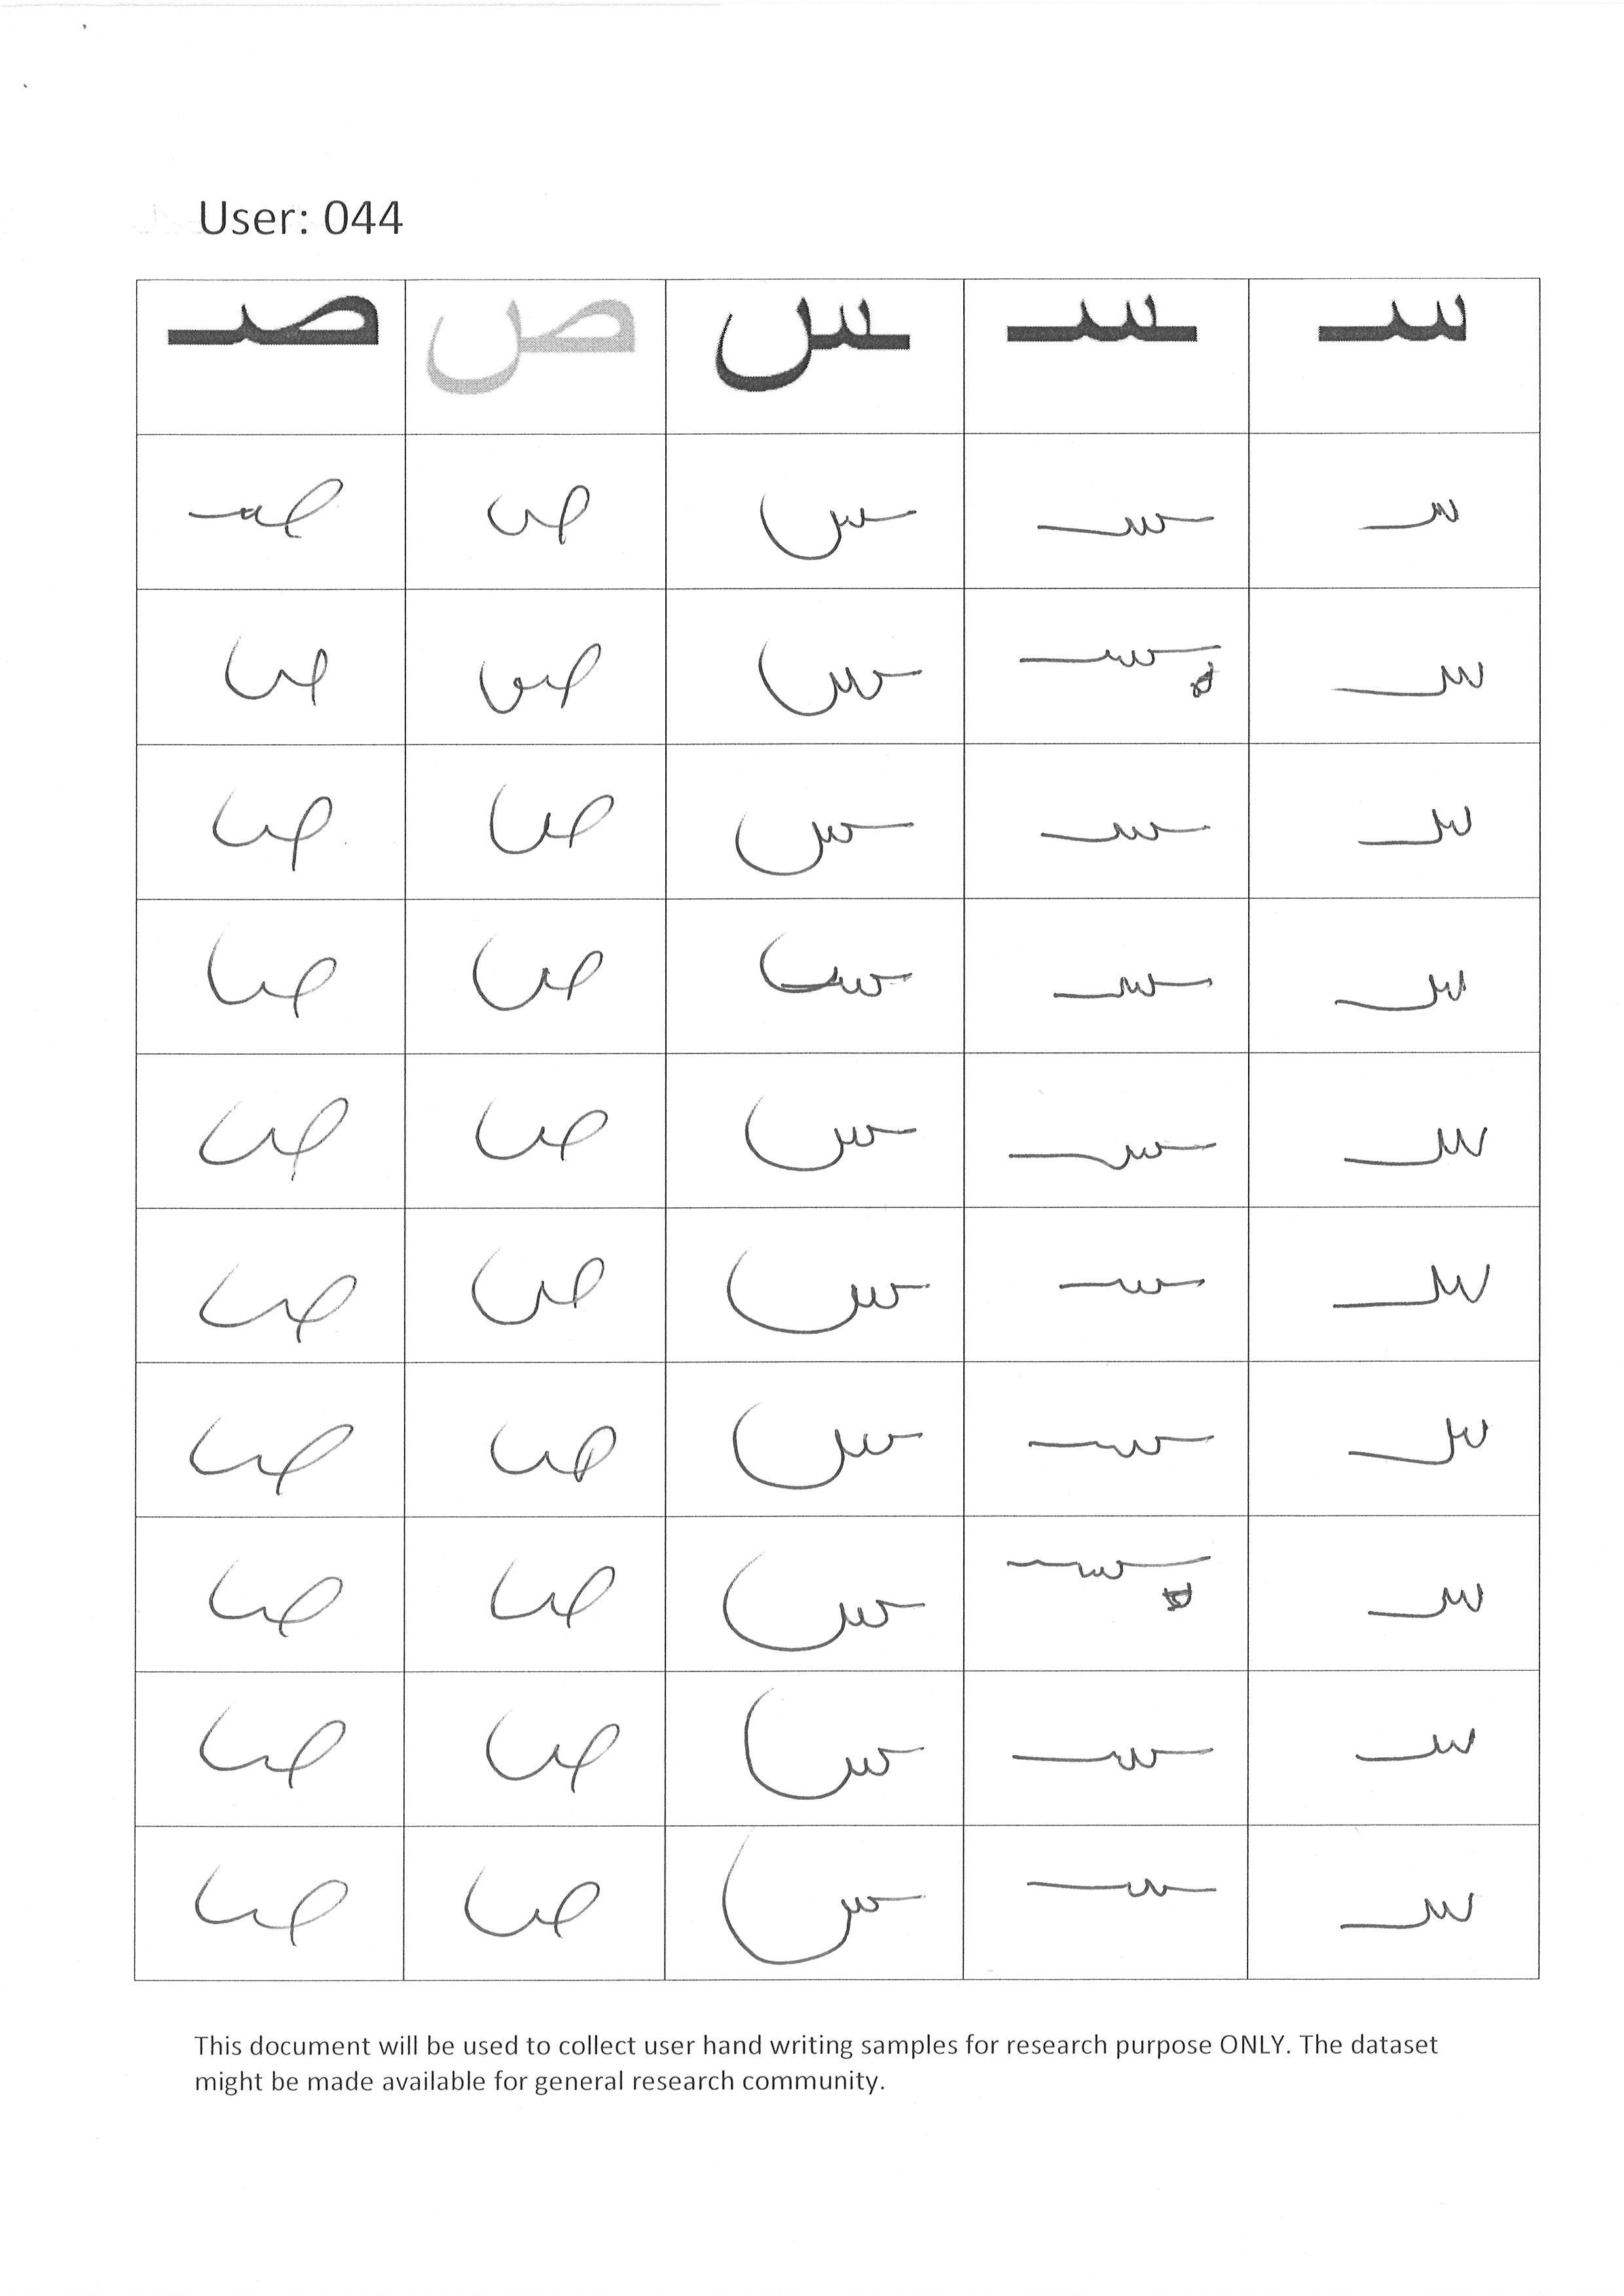 User: 044
سـ ـسـ ـس ص صـ
سـ ـسـ ـس ص صـ
سـ ـسـ ـس ص ص
سـ ـسـ ـس ص ص
سـ ـسـ ـس ص ص
سـ ـسـ ـس ص ص
سـ ـسـ ـس ص ص
سـ ـسـ ـس ص ص
سـ ـسـ ـس ص ص
سـ ـسـ ـس ص ص
سـ ـسـ ـس ص ص
This document will be used to collect user hand writing samples for research purpose ONLY. The dataset
might be made available for general research community.